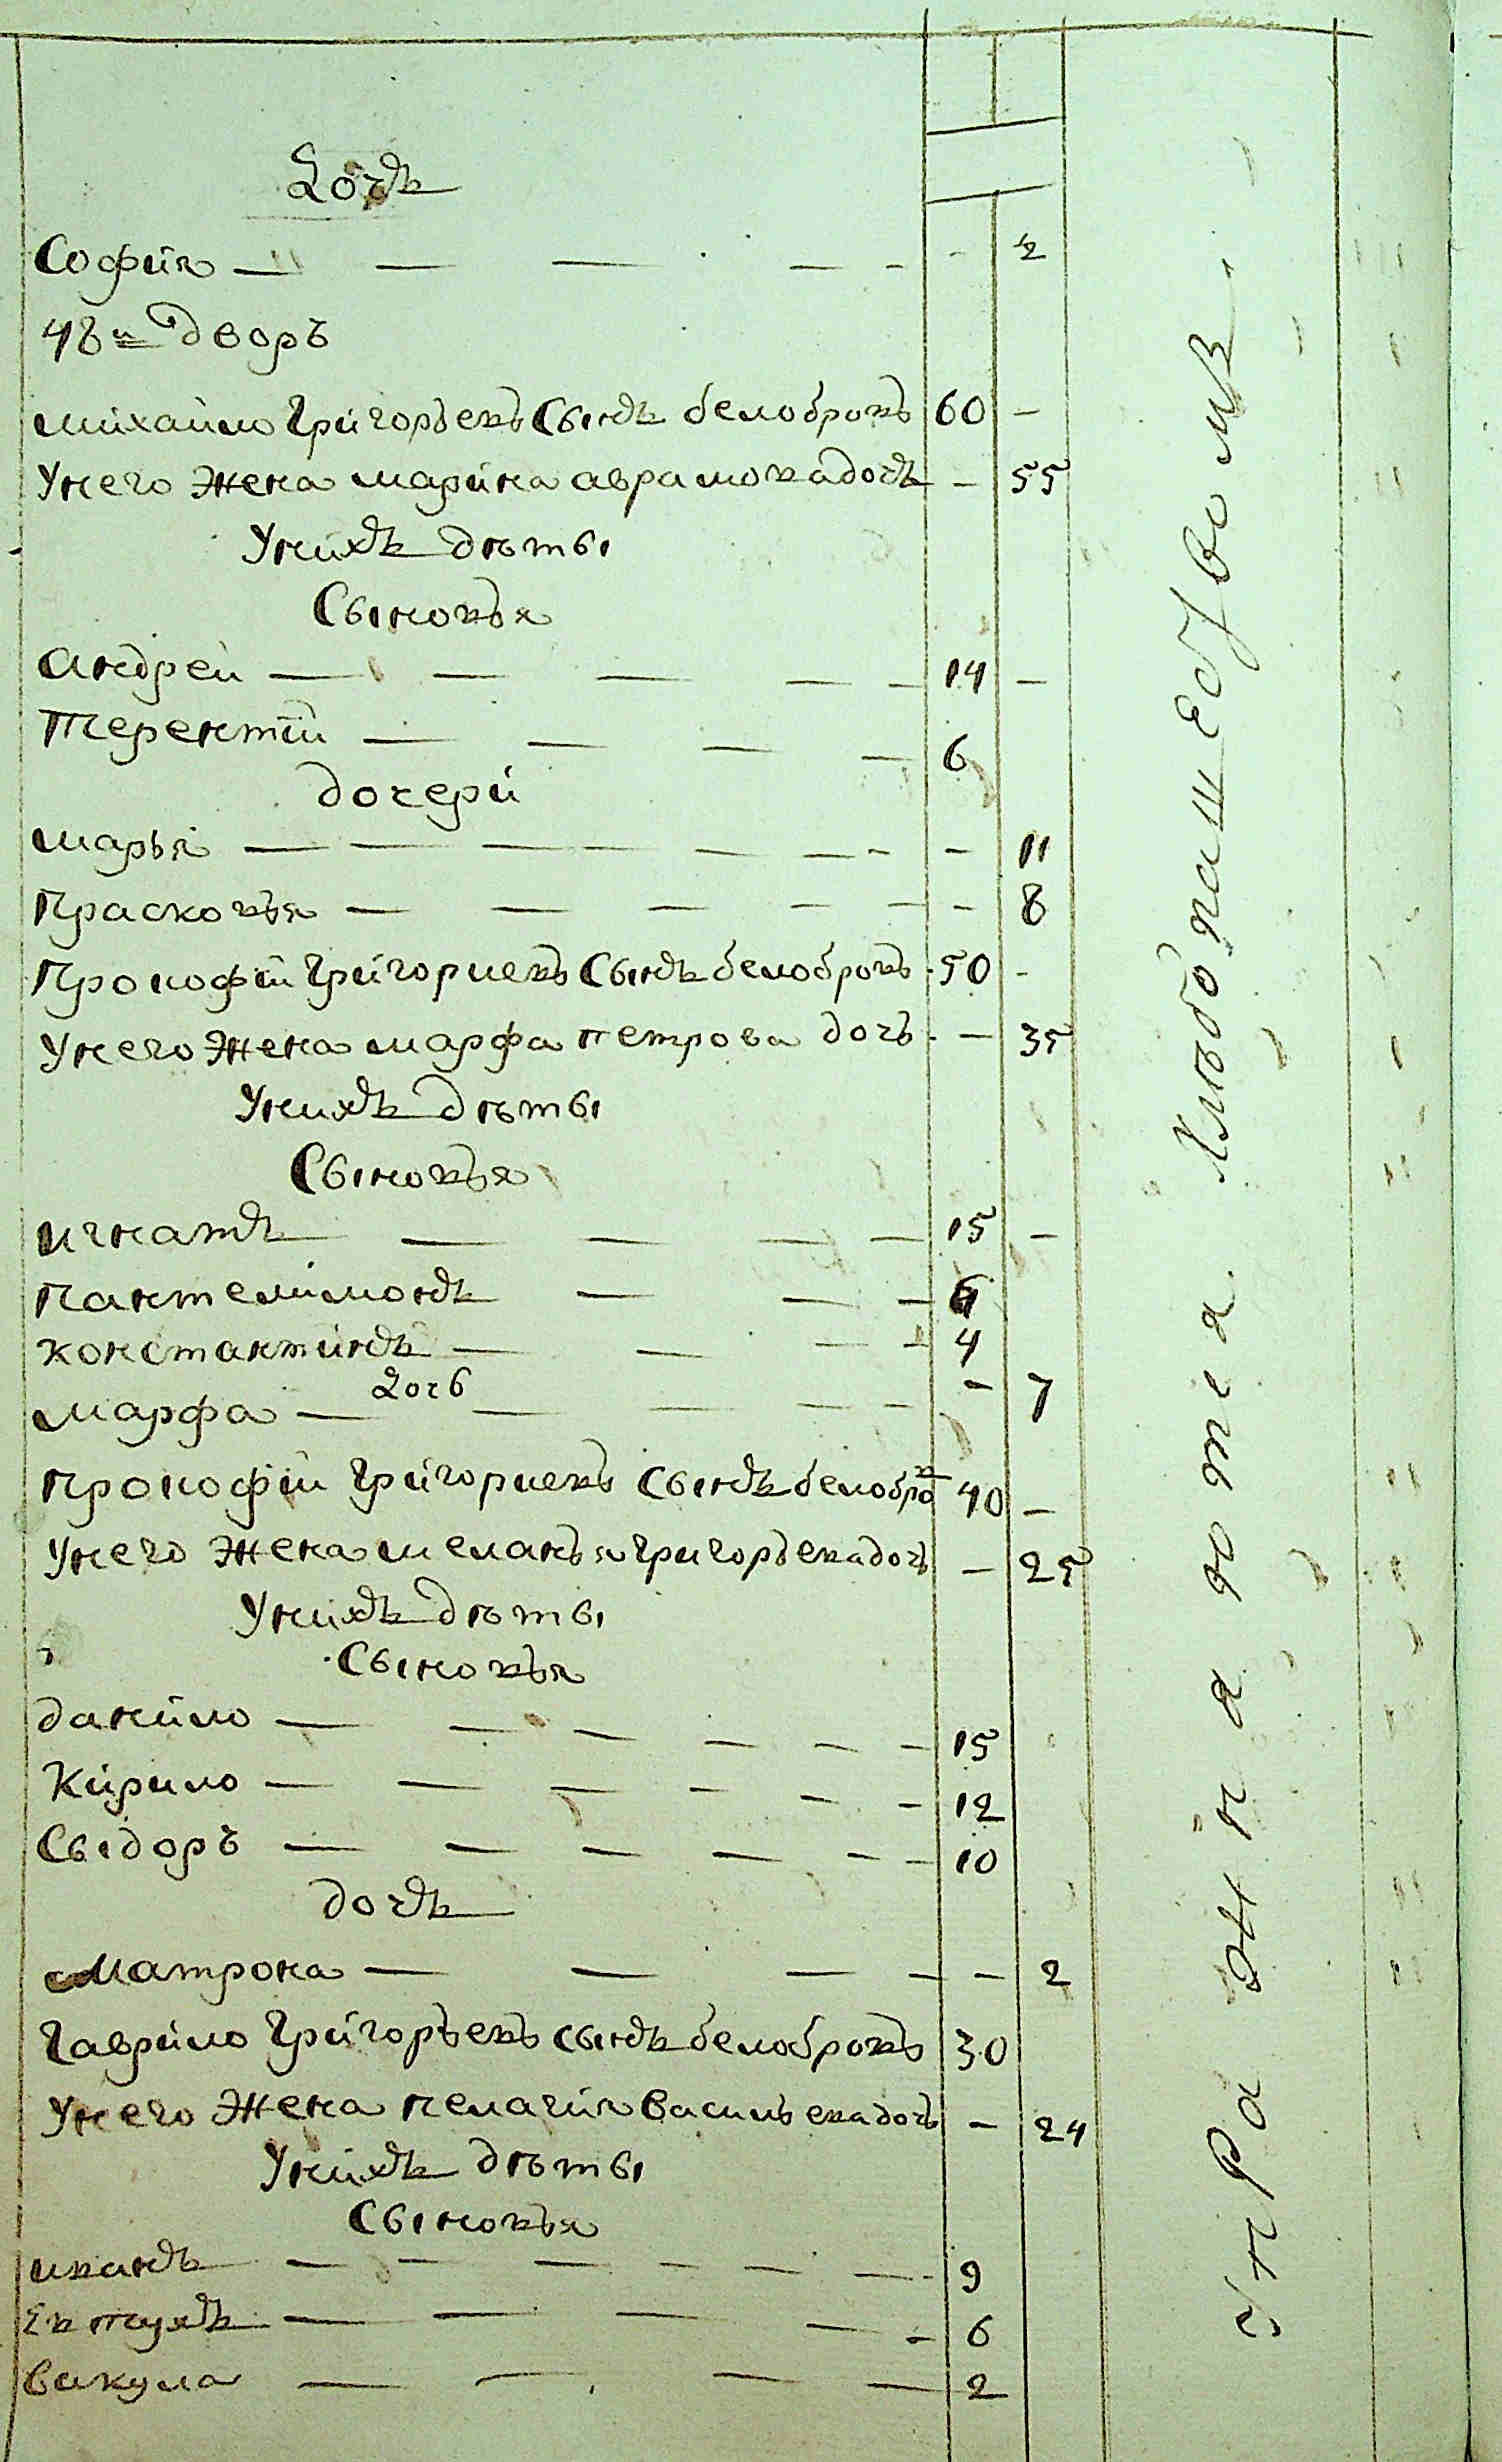 Дочъ
София — — — — - - 2
48й дворъ
Михайло Григорьевъ Сынъ белобровъ 60 —
У него жена марина аврамова дочъ — 55
У нихъ дѣты
Сыновья
андрей — — — — - 14 —
Терентїй — — — — 6
дочери
марья — — — — — — - — 11
Прасковья — — — — — — 8
Прокофїй Григориевъ Сынъ белобровъ 50 -
У него жена марфа петрова дочъ — 35
У нихъ дѣты
Сыновья
игнатъ — — — — 15 —
Пантелимонъ — — — 6
константинъ — — — - 4
дочь
марфа — — — — - - 7
Прокофїй Григориевъ Сынъ белобров 40 —
У него жена меланья григорьева дочъ — 25
У нихъ дѣты
Сыновья
данило — — — — — — 15
Кирило — — — — — - 12
Сыдоръ — — — — - - 10
дочъ
Матрона — — — — — 2
Гаврило Григорьевъ сынъ белобровъ 30
У него жена пелагия Васильева дочъ — 24
У нихъ дѣты
Сыновья
иванъ — — — — — — 9
Евтухъ — — — — - 6
Викула — — — — 2
Упражняются Хлѣбопашеством